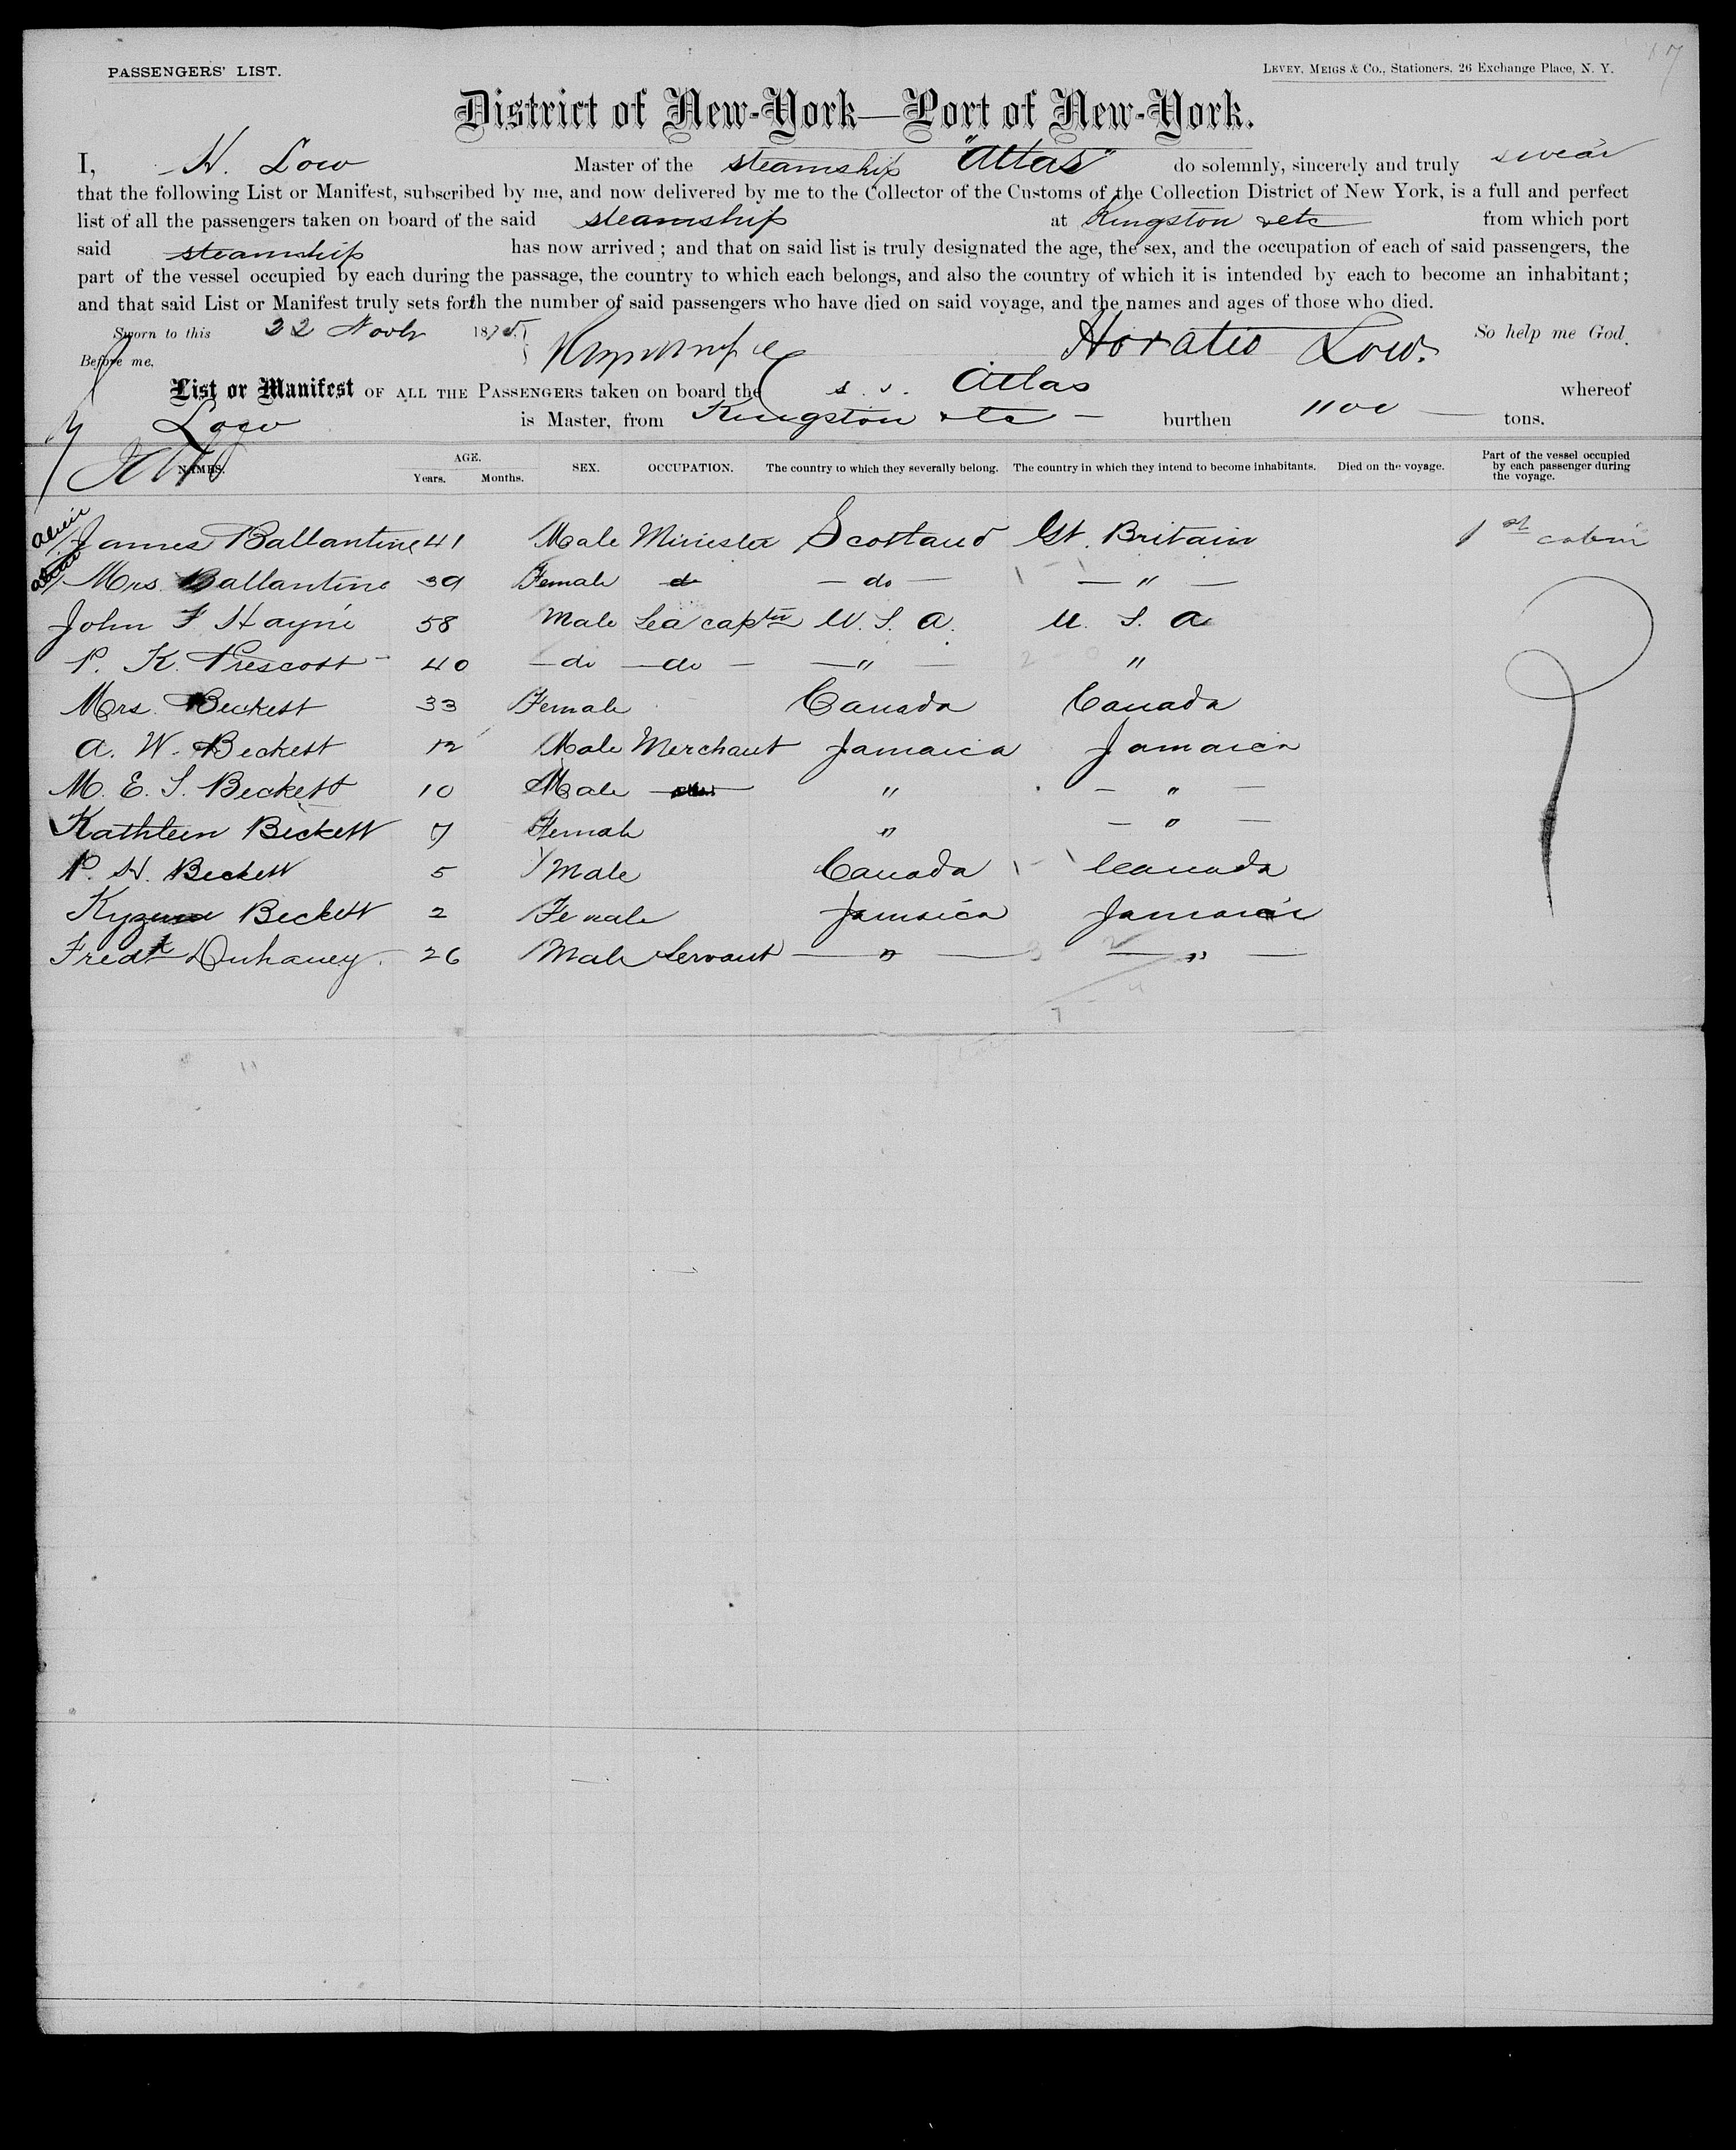 17
PASSENGERS' LIST.
LEVEY, MEIGS & CO., Stationers, 26 Exchange Place, N. Y.
District of New-York—Port of New-York.
I, H. Low Master of the steamship "Atlas" do solemnly, sincerely and truly swear
that the following List or Manifest, subscribed by me, and now delivered by me to the Collector of the Customs of the Collection District of New York, is a full and perfect
list of all the passengers taken on board of the said steamship at Kingston & etc from which port
said steamship has now arrived; and that on said list is truly designated the age, the sex, and the occupation of each of said passengers, the
part of the vessel occupied by each during the passage, the country to which each belongs, and also the country of which it is intended by each to become an inhabitant;
and that said List or Manifest truly sets forth the number of said passengers who have died on said voyage, and the names and ages of those who died.
Sworn to this 22 Novbr 1875 So help me God.
Before me. Horatio Low.
List or Manifest OF ALL THE PASSENGERS taken on board the s. s. Atlas whereof
Low is Master, from Kingston & etc — burthen 1100 — tons.
NAMES. AGE. Years. Months. SEX. OCCUPATION. The country to which they severally belong. The country in which they intend to become inhabitants. Died on the voyage. Part of the vessel occupied by each passenger during the voyage.
James Ballantine 41 Male Minister Scotland Gt. Britain 1st cabin
Mrs Ballantine 39 Female do — do — — " —
John F Hayne 58 Male Sea captn U. S. A. U. S. A
P. K. Prescott - 40 — do — do — — " — "
Mrs. Beckett 33 Female Canada Canada
A. W. Beckett 12 Male Merchant Jamaica Jamaica
M. E. S. Beckett 10 Male " — " —
Kathleen Beckett 7 Female " — " —
P. H. Beckett 5 Male Canada Canada
Beckett 2 Female Jamaica Jamaica
Fredk Duhaney 26 Male Servant — " — — " —